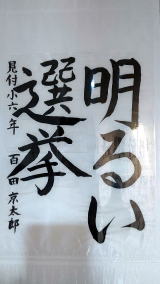 明るい
選挙
見付小六年 百田京太郎